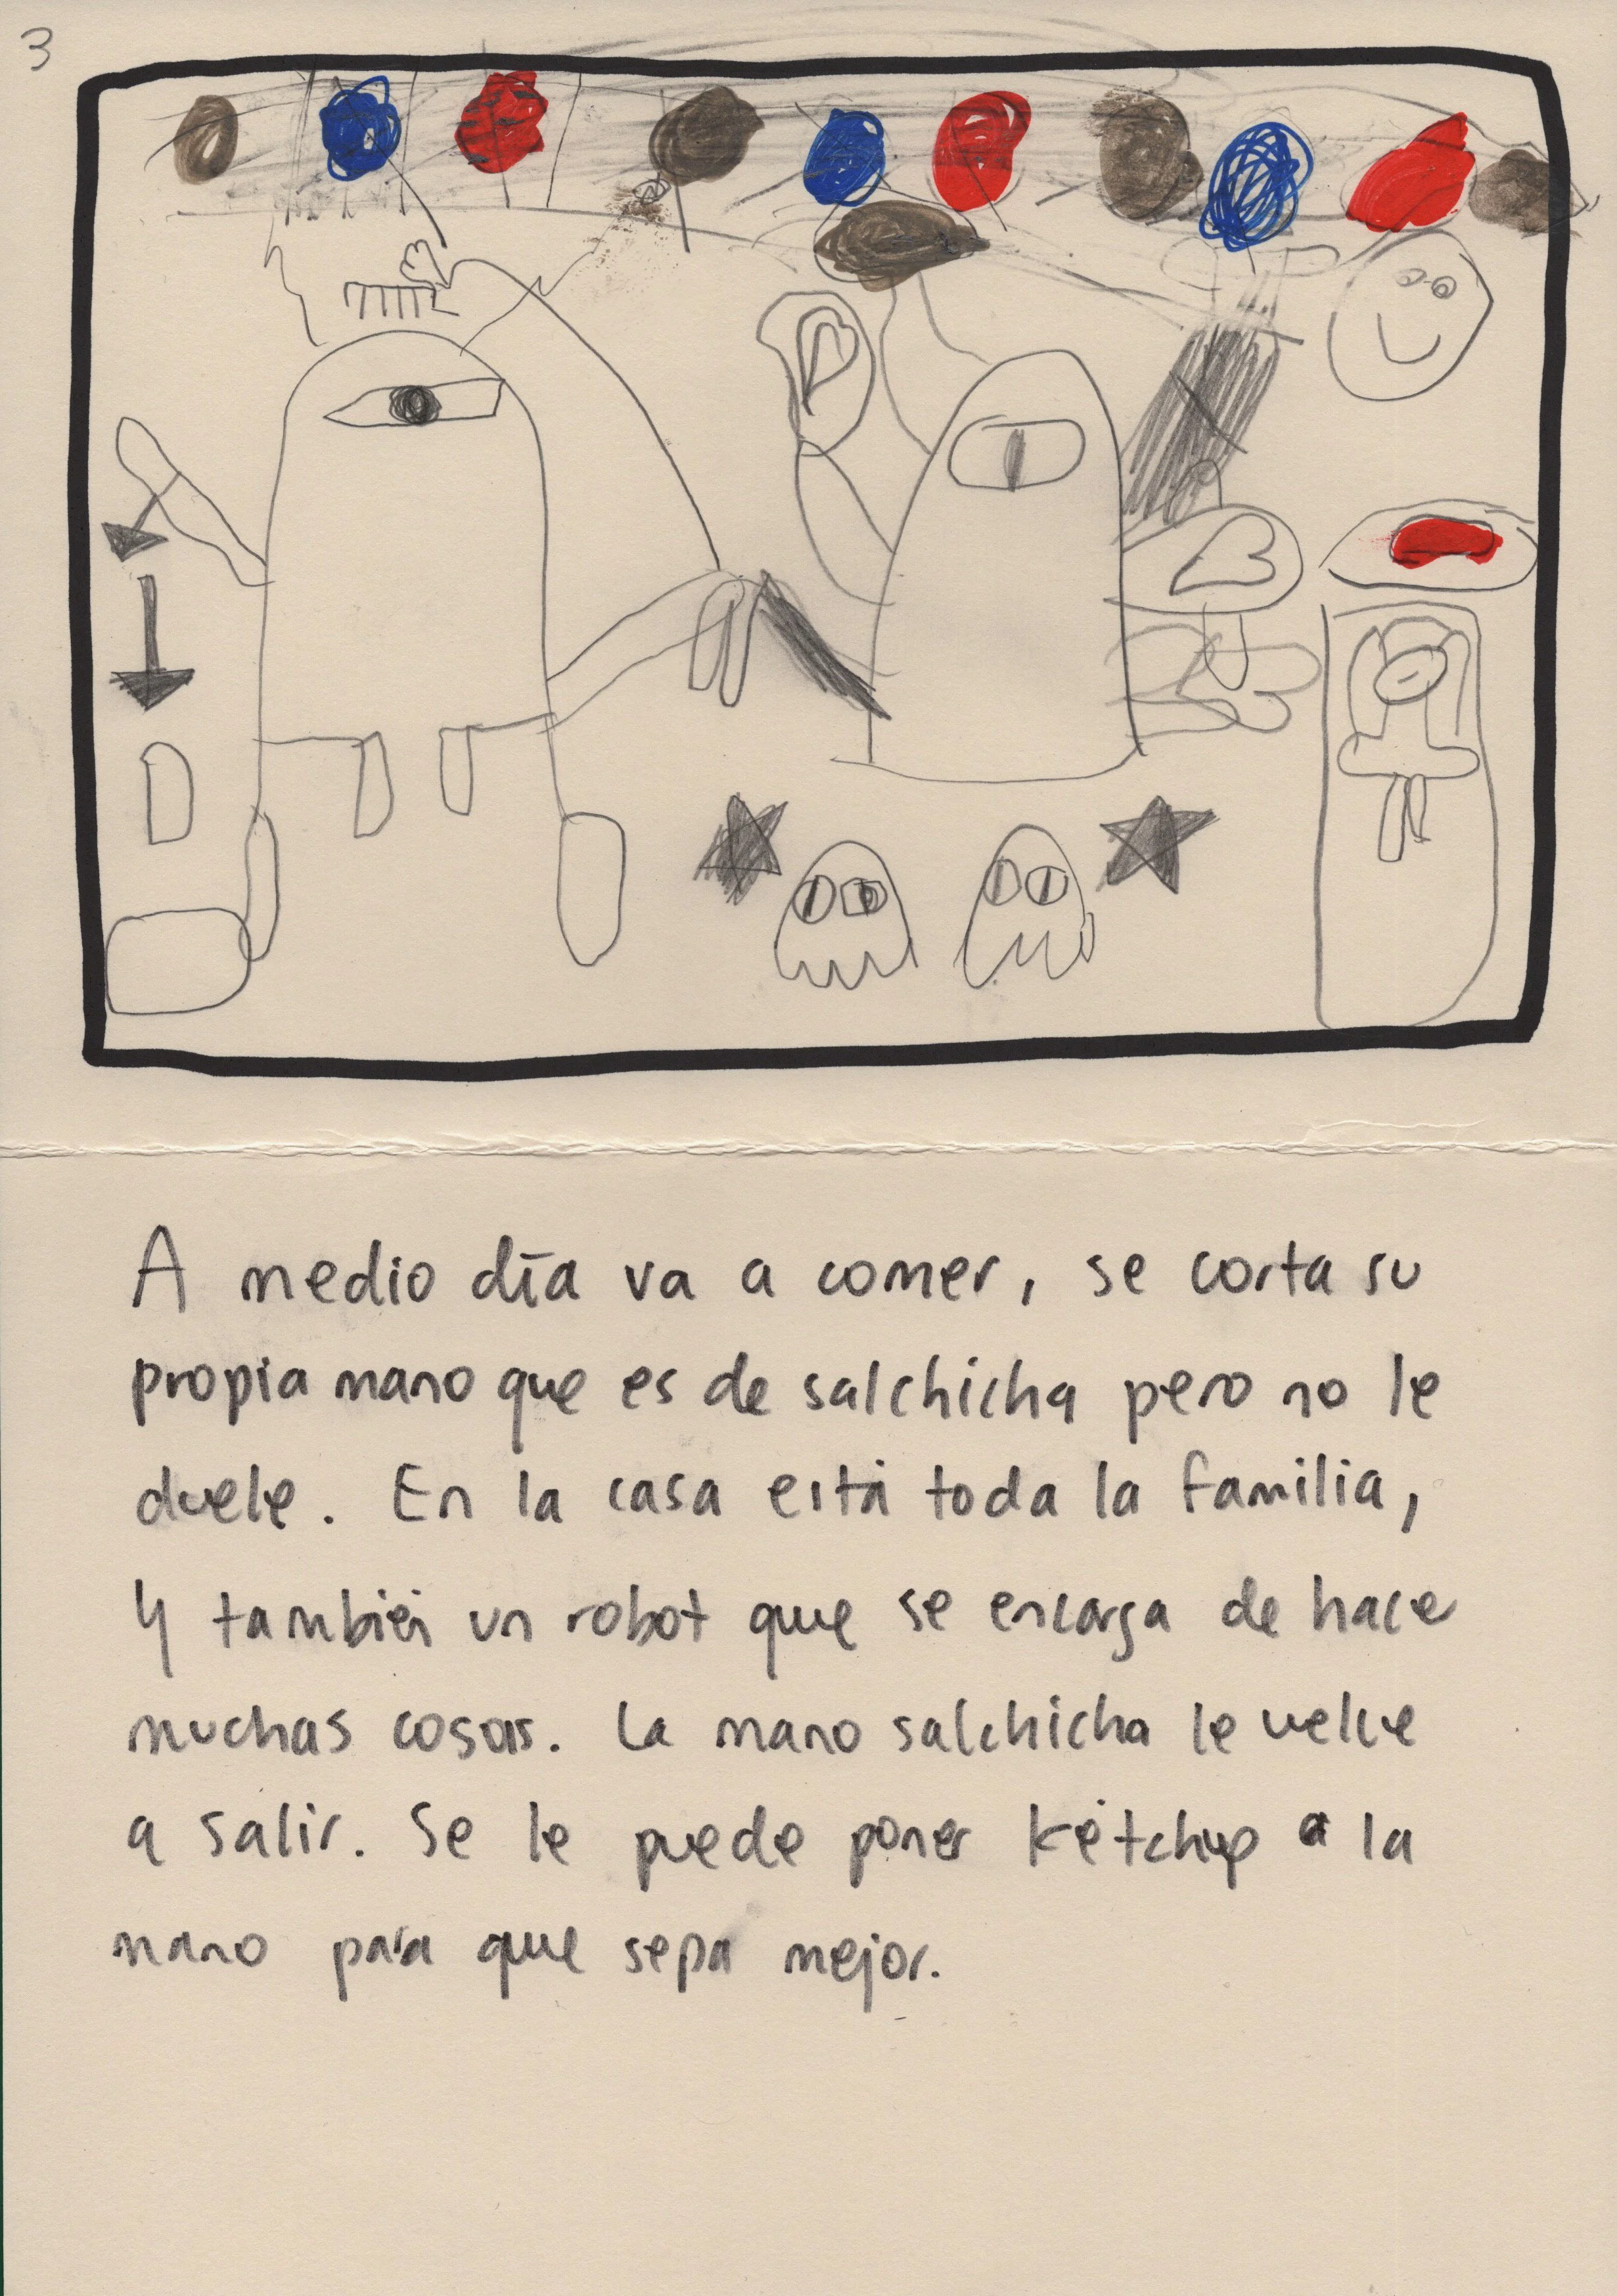 3
A medio día va a comer, se corta su
propia mano que es de salchicha pero no le
duele. En la casa está toda la familia,
Y también un robot que se encarga de hace
muchas cosas. La mano salchicha le velve
a salir. Se le puede poner kétchup a la
mano para que sepa mejor.